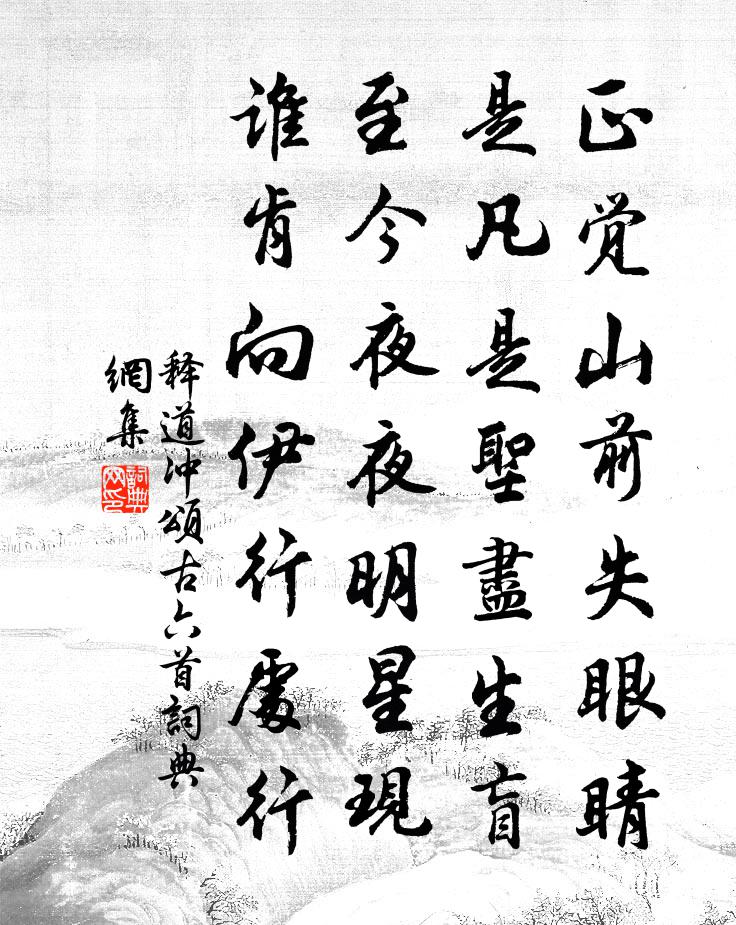 正觉山前失眼睛
是凡是聖盡生盲
至今夜夜明星現
誰肯向伊行處行
释道冲頌古六首詞典
網集
詞典
网印